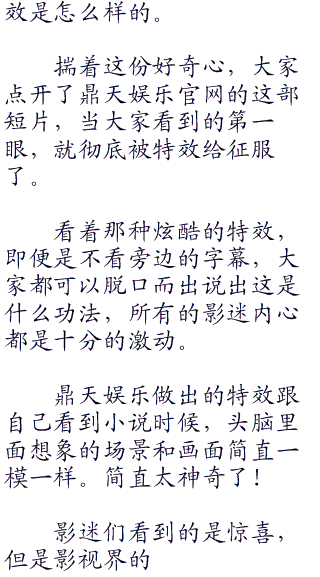 效是怎么样的。
揣着这份好奇心，大家
点开了鼎天娱乐官网的这部
短片，当大家看到的第一
眼，就彻底被特效给征服
了。
看着那种炫酷的特效，
即便是不看旁边的字幕，大
家都可以脱口而出说出这是
什么功法，所有的影迷内心
都是十分的激动。
鼎天娱乐做出的特效跟
自己看到小说时候，头脑里
面想象的场景和画面简直一
模一样。简直太神奇了！
影迷们看到的是惊喜，
但是影视界的